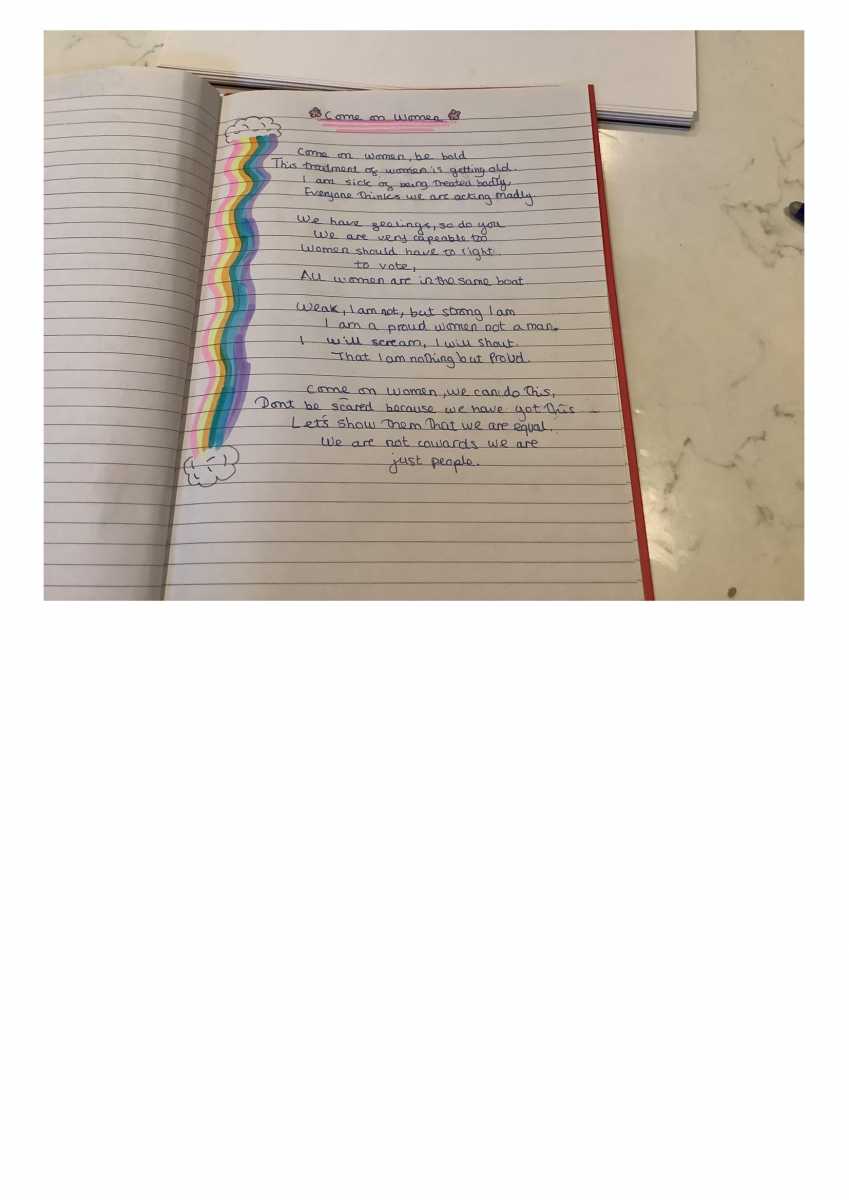 Come on Women
Come on women, be bold
This treatment of women is getting old.
I am sick of being treated badly,
Everyone thinks we are acting madly.
We have feelings, so do you
We are very capeable too
Women should have to right
to vote,
All women are in the same boat
Weak, I am not, but strong I am
I am a proud women not a man.
I will scream, I will shout.
That I am nothing but Proud.
Come on women, we can do this,
Dont be scared because we have got this
Let's show them that we are equal.
We are not cowards we are
just people.